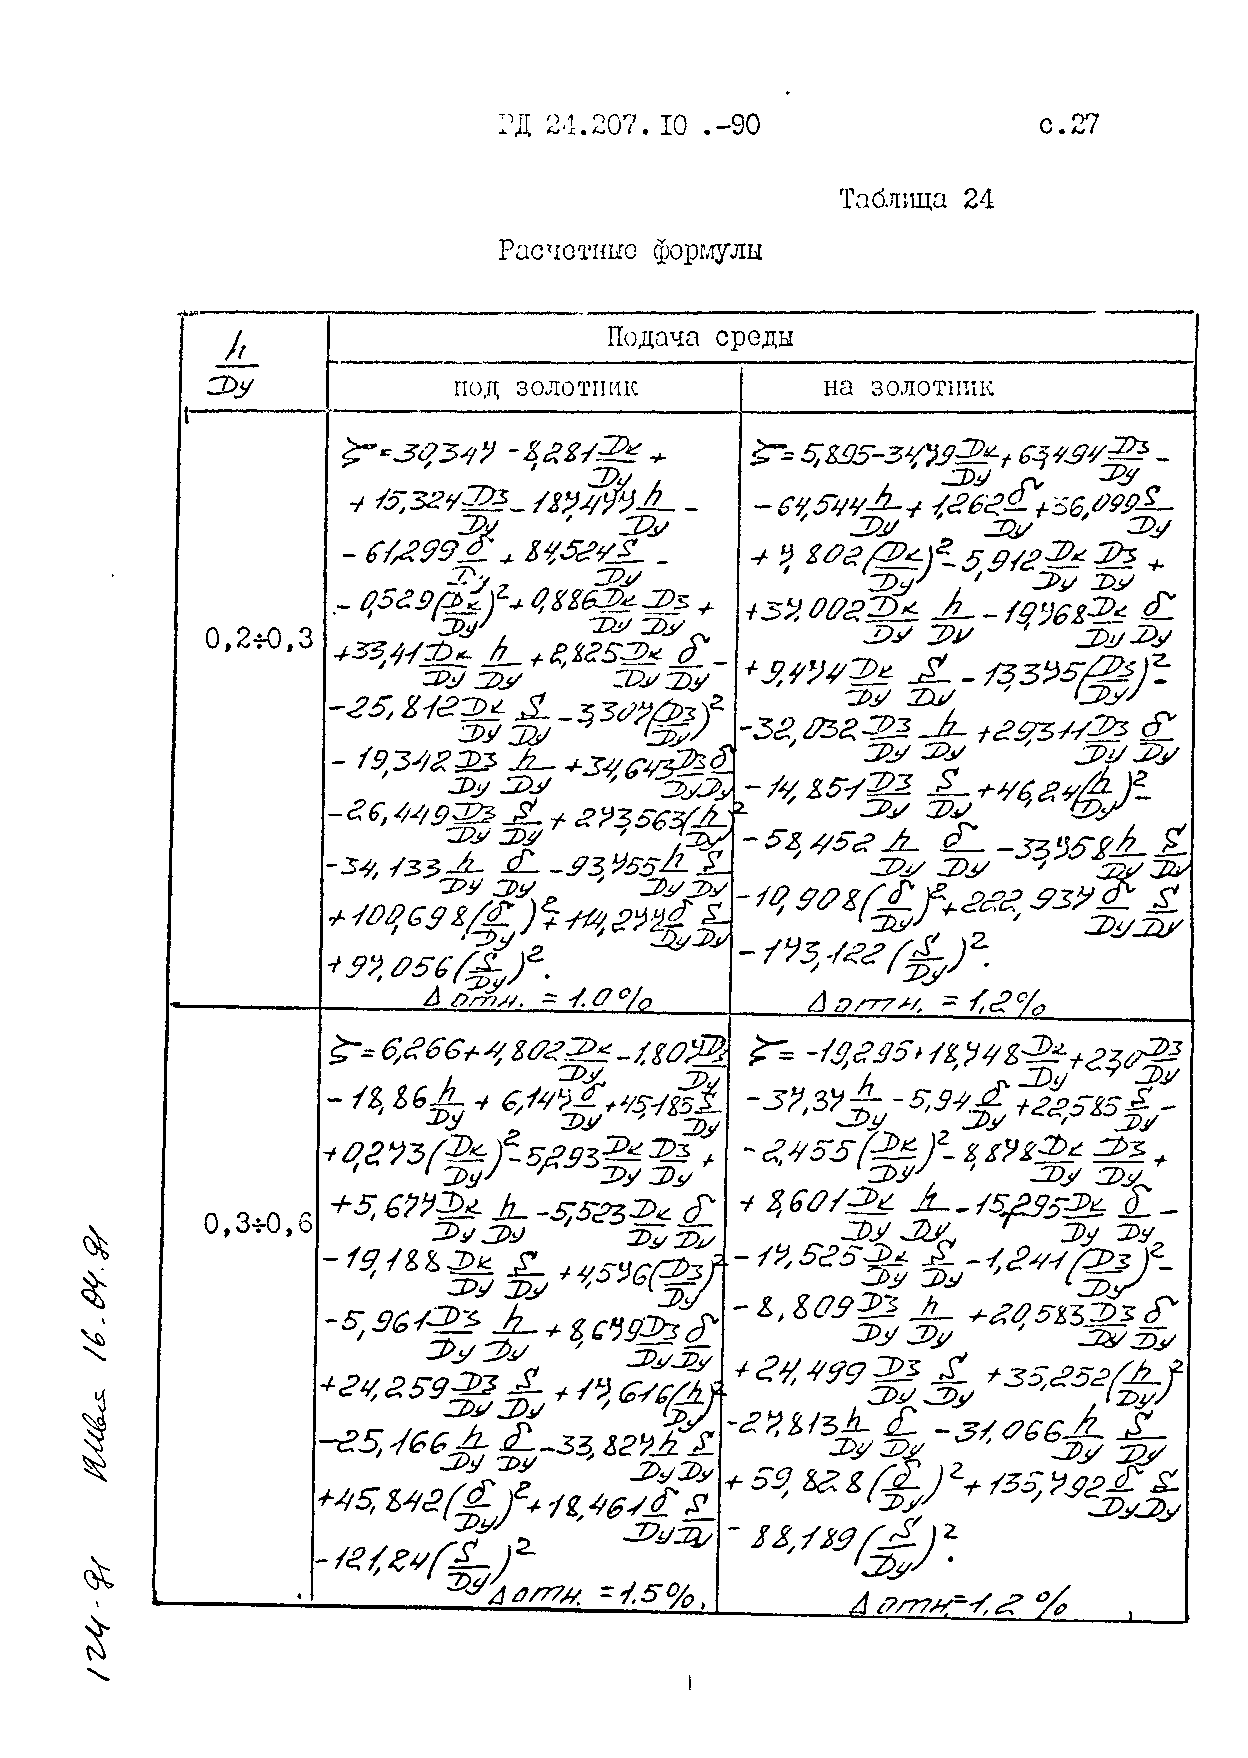 РД 24.207.10 .-90 с.27
Таблица 24
Расчетные формулы
h/Dу
Подача среды
под золотник
на золотник
0,2÷0,3
ζ=30,347 - 8,281 Dк/Dу +
+ 15,324 Dз/Dу - 187,477 h/Dу -
- 61,299 δ/Dу + 84,524 S/Dу -
- 0,529(Dк/Dу)² + 0,886 Dк/Dу Dз/Dу +
+33,41 Dк/Dу h/Dу + 2,825 Dк/Dу δ/Dу -
-25,812 Dк/Dу S/Dу - 3,307(Dз/Dу)²
- 19,342 Dз/Dу h/Dу + 34,643 Dз/Dу δ/Dу
-26,449 Dз/Dу S/Dу + 273,563(h/Dу)²
-34,133 h/Dу δ/Dу - 93,755 h/Dу S/Dу
+100,698(δ/Dу)² + 114,277 δ/Dу S/Dу
+97,056(S/Dу)².
Δ отн. = 1.0%
ζ=5,895-34,79 Dк/Dу + 63,494 Dз/Dу -
- 64,544 h/Dу + 1,262 δ/Dу + 36,099 S/Dу
+ 7,802(Dк/Dу)² - 5,912 Dк/Dу Dз/Dу +
+37,002 Dк/Dу h/Dу - 19,768 Dк/Dу δ/Dу
+ 9,474 Dк/Dу S/Dу - 13,375(Dз/Dу)² -
-32,032 Dз/Dу h/Dу + 29,311 Dз/Dу δ/Dу
-14,851 Dз/Dу S/Dу + 46,24(h/Dу)² -
-58,452 h/Dу δ/Dу - 33,758 h/Dу S/Dу
-10,908(δ/Dу)² + 222,937 δ/Dу S/Dу
- 173,122(S/Dу)².
Δ отн. = 1,2%
0,3÷0,6
ζ=6,266+4,802 Dк/Dу - 1,807 Dз/Dу
- 18,86 h/Dу + 6,147 δ/Dу + 45,185 S/Dу
+0,273(Dк/Dу)² - 5,293 Dк/Dу Dз/Dу +
+5,677 Dк/Dу h/Dу - 5,523 Dк/Dу δ/Dу
- 19,188 Dк/Dу S/Dу + 4,576(Dз/Dу)²
-5,961 Dз/Dу h/Dу + 8,679 Dз/Dу δ/Dу
+24,259 Dз/Dу S/Dу + 17,616(h/Dу)²
-25,166 h/Dу δ/Dу - 33,827 h/Dу S/Dу
+45,842(δ/Dу)² + 18,461 δ/Dу S/Dу
-121,24(S/Dу)²
Δ отн. = 1.5%.
ζ= -19,295+18,748 Dк/Dу + 2,30 Dз/Dу
-37,37 h/Dу - 5,94 δ/Dу + 22,585 S/Dу -
- 2,455(Dк/Dу)² - 8,878 Dк/Dу Dз/Dу +
+ 8,601 Dк/Dу h/Dу - 15,295 Dк/Dу δ/Dу -
- 17,525 Dк/Dу S/Dу - 1,241(Dз/Dу)² -
- 8,809 Dз/Dу h/Dу + 20,583 Dз/Dу δ/Dу
+24,499 Dз/Dу S/Dу + 35,252(h/Dу)²
-27,813 h/Dу δ/Dу - 31,066 h/Dу S/Dу
+ 59,828(δ/Dу)² + 135,792 δ/Dу S/Dу
- 88,189(S/Dу)².
Δ отн=1.2%
124-91 16.04.91